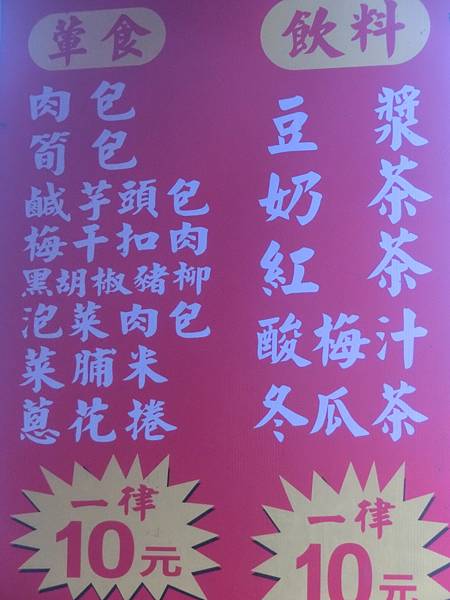 葷食
肉包
筍包
鹹芋頭包
梅干扣肉
黑胡椒豬柳
泡菜肉包
菜脯米
蔥花捲
一律
10元
飲料
豆漿
奶茶
紅茶
酸梅汁
冬瓜茶
一律
10元